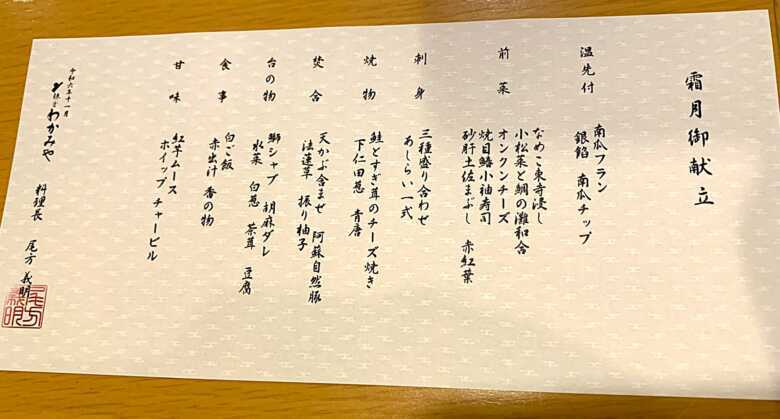 霜月御献立
温先付
南瓜フラン
銀餡 南瓜チップ
前菜
なめこ東寺浸し
小松菜と鯛の灘和合
オンクンチーズ
焼目鯖小袖寿司
砂肝土佐まぶし 赤紅葉
刺身
三種盛り合わせ
あしらい一式
焼物
鮭とすぎ茸のチーズ焼き
下仁田葱 青唐
焚合
天かぶ含ませ 阿蘇自然豚
法蓮草 振り柚子
台の物
鰤シャブ 胡麻ダレ
水菜 白葱 茶茸 豆腐
食事
白ご飯
赤出汁 香の物
甘味
紅芋ムース
ホイップ チャービル
令和六年十一月
わかみや
料理長 尾方 義明